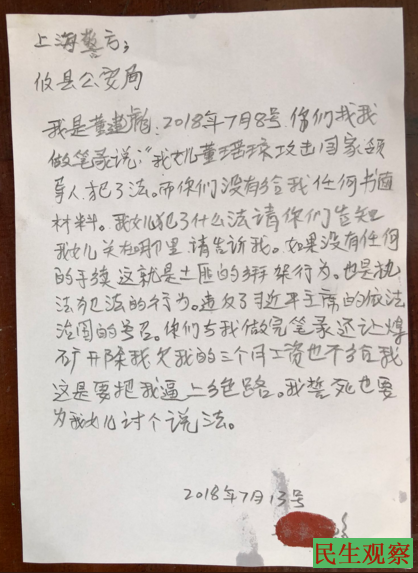 上海警方；
攸县公安局
我是董建彪：2018年7月8号，你们找我
做笔录说："我女儿董瑶琼攻击国家领
导人犯了法。而你们没有给我任何书面
材料。我女儿犯了什么法请你们告知
我女儿关在哪里请告诉我。如果没有任何
的手续这就是土匪的绑架行为。也是执
法犯法的行为。违反了习近平主席的依法
治国的号召。你们与我做完笔录还让煤
矿开除我欠我的三个月工资也不给我
这是要把我逼上绝路。我誓死也要
为我女儿讨个说法。
2018年7月13号
民生观察